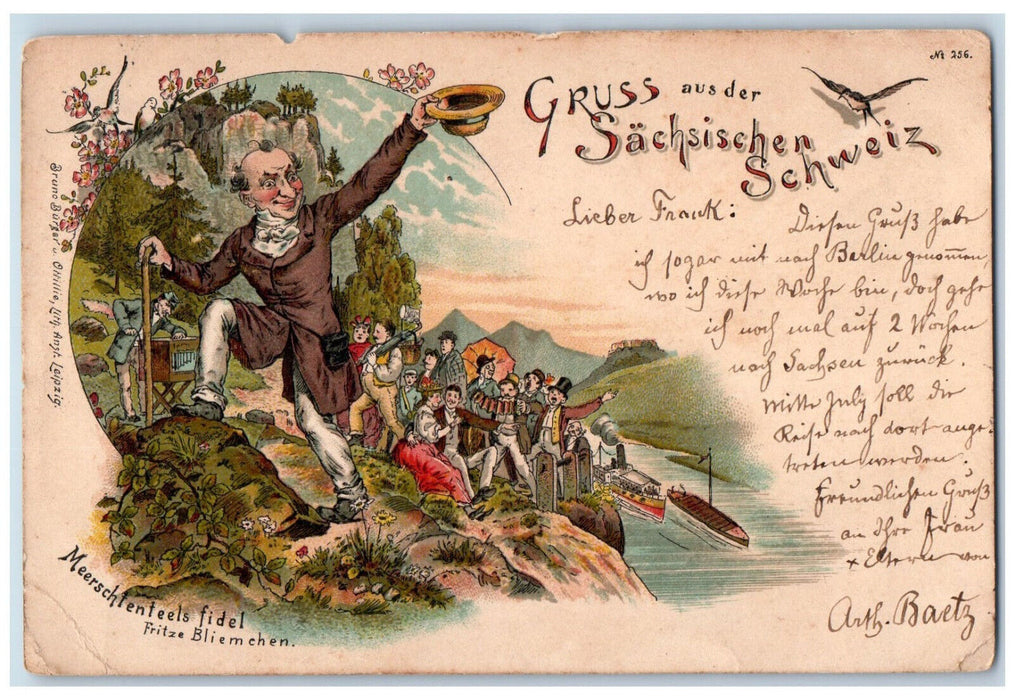 № 256.
Gruss aus der
Sächsischen
Schweiz
Lieber Frank:
Diesen Gruß habe
ich sogar mit nach Berlin genom̅en,
wo ich diese Woche bin, doch gehe
ich noch mal auf 2 Wochen
nach Sachsen zurück.
Mitte July soll die
Reise nach dort ange-
treten werden.
Freundlichen Gruß
an Ihre Frau
+ Eltern von
Arth. Baetz
Bruno Bürger u. Ottillie, Lith. Anst. Leipzig.
Meerschtenteels fidel
Fritze Bliemchen.